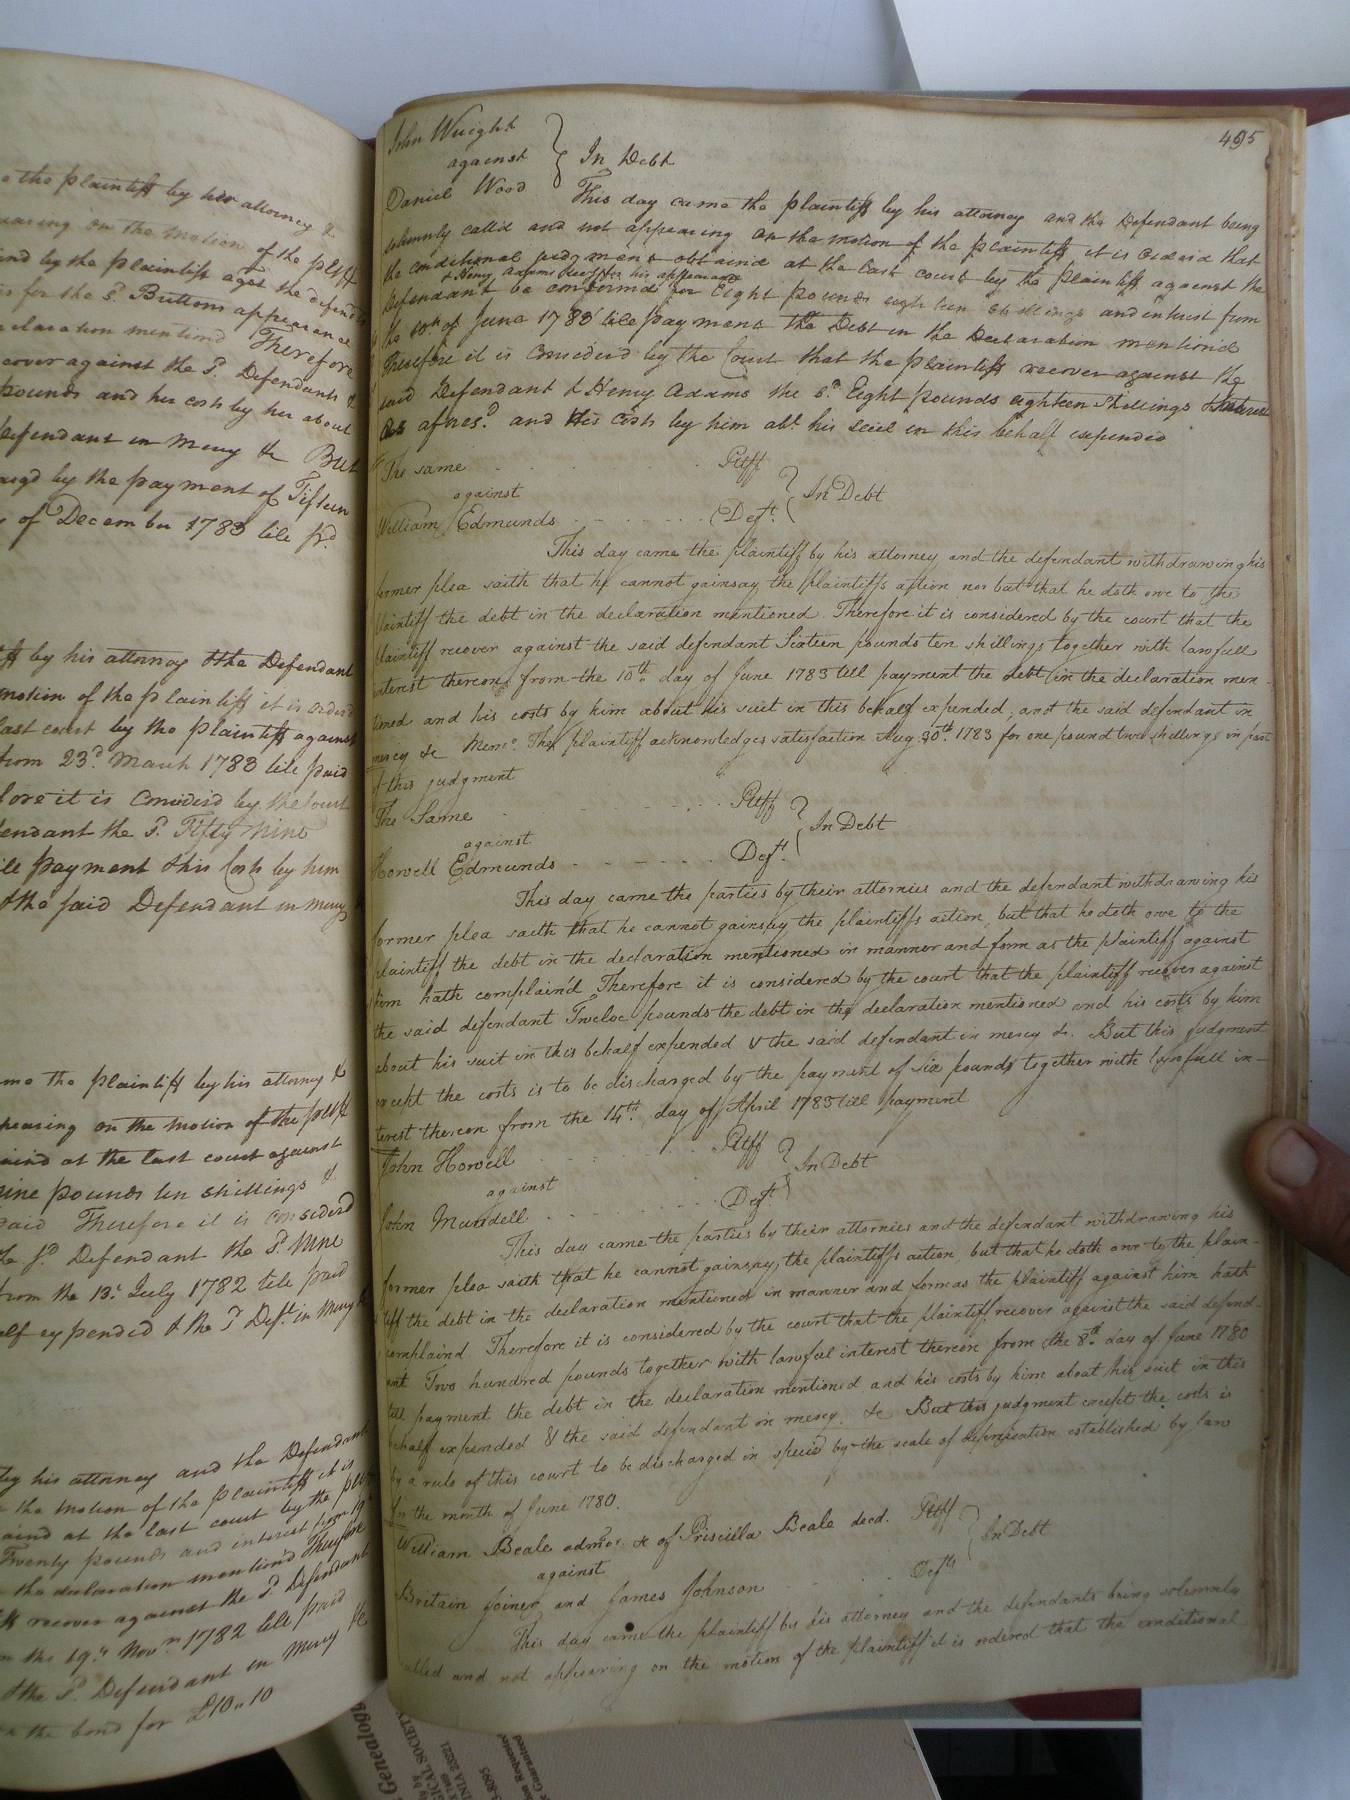 a the plaintiff by her attorney &
pearing on the motion of the pltff
and by the plaintiff agst the defend
for the sd. Buttons appearance
eclaration mentiond Therefore
ecover against the sd. Defendants &
pounds and her costs by her about
Defendant in mercy &c But
argd by the payment of Fifteen
of December 1783 till pd.
ff by his attorney & the Defendant
motion of the plaintiff it is orderd
last court by the plaintiff against
from 23d. March 1783 till paid
fore it is Considerd by the Court
fendant the sd. Fifty Nine
ill payment & his Costs by him
& the said Defendant in mercy
me the plaintiff by his attorney &
pearing on the motion of the pltff
aind at the last court against
nine pounds ten shillings &
paid Therefore it is considerd
the sd Defendant the sd nine
from the 13th July 1782 till paid
alf expended & the sd Deft. in mercy
by his attorney and the Defendant
the motion of the plaintiff it is
aind at the last court by the
Twenty pounds and interest from 19
the declaration mentiond Therefore
ff recover against the sd Defendant
m the 19th Novr. 1782 till paid
& the sd. Defendant in mercy &c
the bond for £10..10
495
John Wright
against } In Debt
Daniel Wood
This day came the plaintiff by his attorney and the Defendant being
solemnly calld and not appearing on the motion of the plaintiff it is orderd that
the conditional judgment obtaind at the last court by the plaintiff against the
& Henry Adams Secy for his appearance
Defendant be confirmd for Eight pounds eighteen shillings and interest from
the 10th of June 1783 till payment the Debt in the Declaration mentiond
Therefore it is Considerd by the Court that the plaintiff recover against the
said Defendant & Henry Adams the sd. Eight pounds eighteen Shillings & Interest
as aforesd. and his costs by him abt his suit in this behalf expended
The same Pltff
against } In Debt
William Edmunds Deft.
This day came the plaintiff by his attorney and the defendant withdrawing his
former plea saith that he cannot gainsay the plaintiffs action nor but that he doth owe to the
plaintiff the debt in the declaration mentioned. Therefore it is considered by the court that the
plaintiff recover against the said defendant Sixteen pounds ten shillings together with lawfull
interest thereon from the 10th. day of June 1783 till payment the debt in the declaration men-
tioned and his costs by him about his suit in this behalf expended, and the said defendant in
mercy &c Memo. The plaintiff acknowledges satisfaction Aug. 30th. 1783 for one pound two shillings in part
of this judgment
The Same Pltff
against } In Debt
Howell Edmunds Deft.
This day came the parties by their attornies and the defendant withdrawing his
former plea saith that he cannot gainsay the plaintiffs action, but that he doth owe to the
plaintiff the debt in the declaration mentioned in manner and form as the plaintiff against
him hath complain'd Therefore it is considered by the court that the plaintiff recover against
the said defendant Twelve pounds the debt in the declaration mentioned and his costs by him
about his suit in this behalf expended & the said defendant in mercy &c. But this judgment
except the costs is to be discharged by the payment of six pounds together with lawfull in-
terest thereon from the 14th. day of April 1783 till payment
John Howell Pltff
against } In Debt
John Mundell Deft.
This day came the parties by their attornies and the defendant withdrawing his
former plea saith that he cannot gainsay the plaintiffs action, but that he doth owe to the plain-
tiff the debt in the declaration mentioned in manner and form as the plaintiff against him hath
complaind. Therefore it is considered by the court that the plaintiff recover against the said defend-
ant Two hundred pounds together with lawful interest thereon from the 8th. day of June 1780
till payment the debt in the declaration mentioned and his costs by him about his suit in this
behalf expended & the said defendant in mercy. &c But this judgment except the costs is
by a rule of this court to be discharged in specie by the scale of depreciation established by law
for the month of June 1780.
William Beale admor. &c of Priscilla Beale decd. Pltff
against } In Debt
Britain Joiner and James Johnson Defts
This day came the plaintiff by his attorney and the defendants being solemnly
called and not appearing on the motion of the plaintiff it is ordered that the conditional
Genealogy